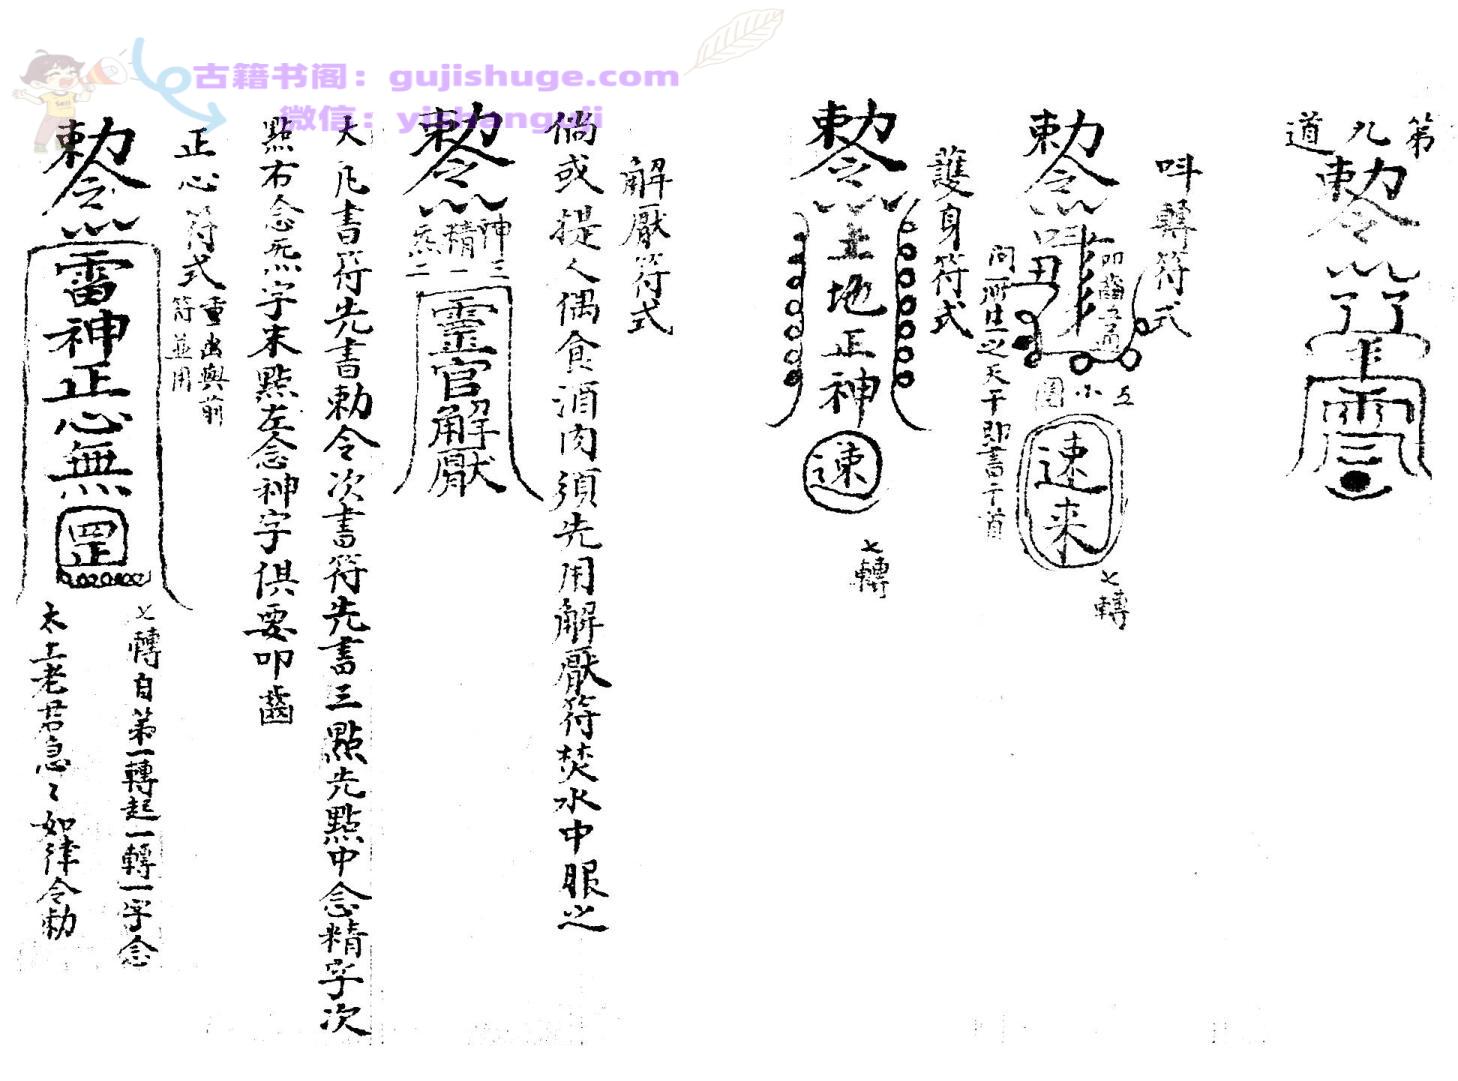 古籍书阁：gujishuge.com
微信：yishanguji
第九道
勅令
叫轉符式
勅令
叩齒五通
五小圈
速来
七轉
問所住之天干即書干首
護身符式
勅令
土地正神
速
七轉
解厭符式
倘或提人偶食酒肉須先用解厭符焚水中服之
勅令
神三
精一
炁二
靈官解厭
大凡書符先書勅令次書符先書三點先點中念精字次
點右念炁字末點左念神字俱要叩齒
正心符式
重出與前
符並用
勅令
雷神正心無
罡
七轉自第一轉起一轉一字念
太上老君急〻如律令勅